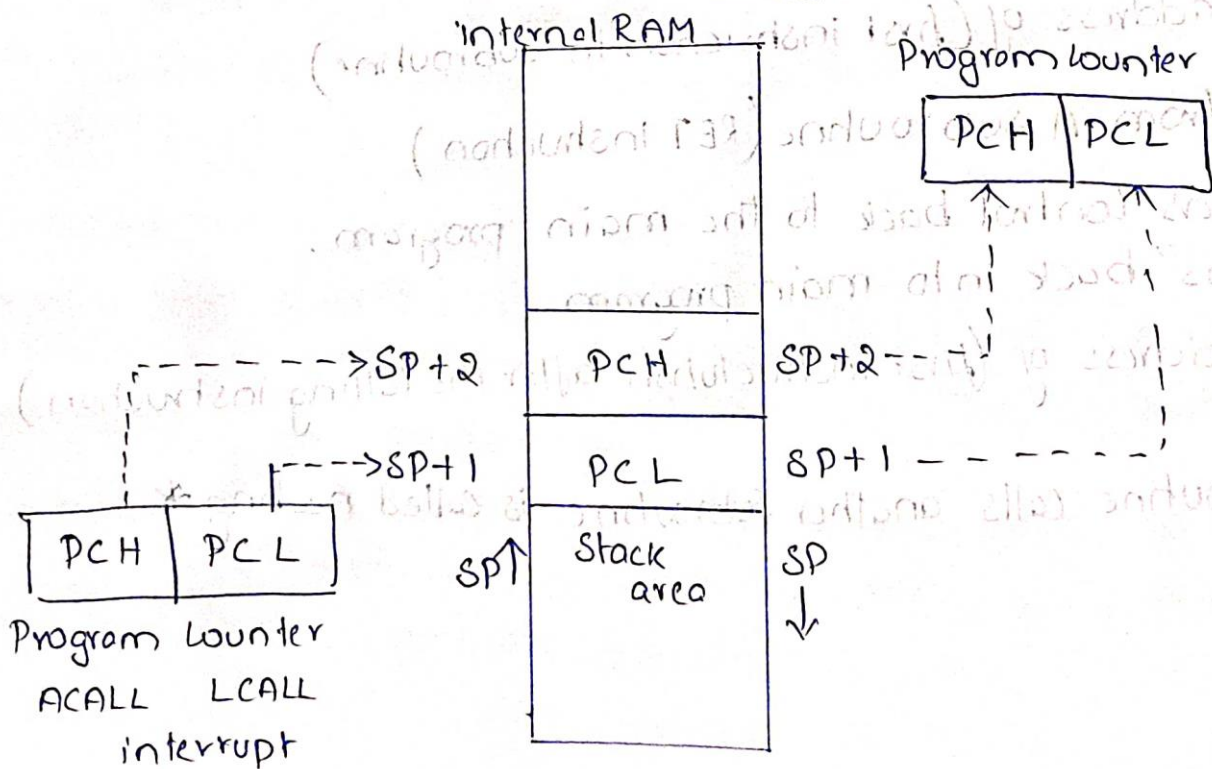 internal RAM
Program Counter
PCH PCL
SP+2 PCH SP+2
SP+1 PCL SP+1
PCH PCL
SP↑ Stack area SP ↓
Program Counter
ACALL LCALL
interrupt